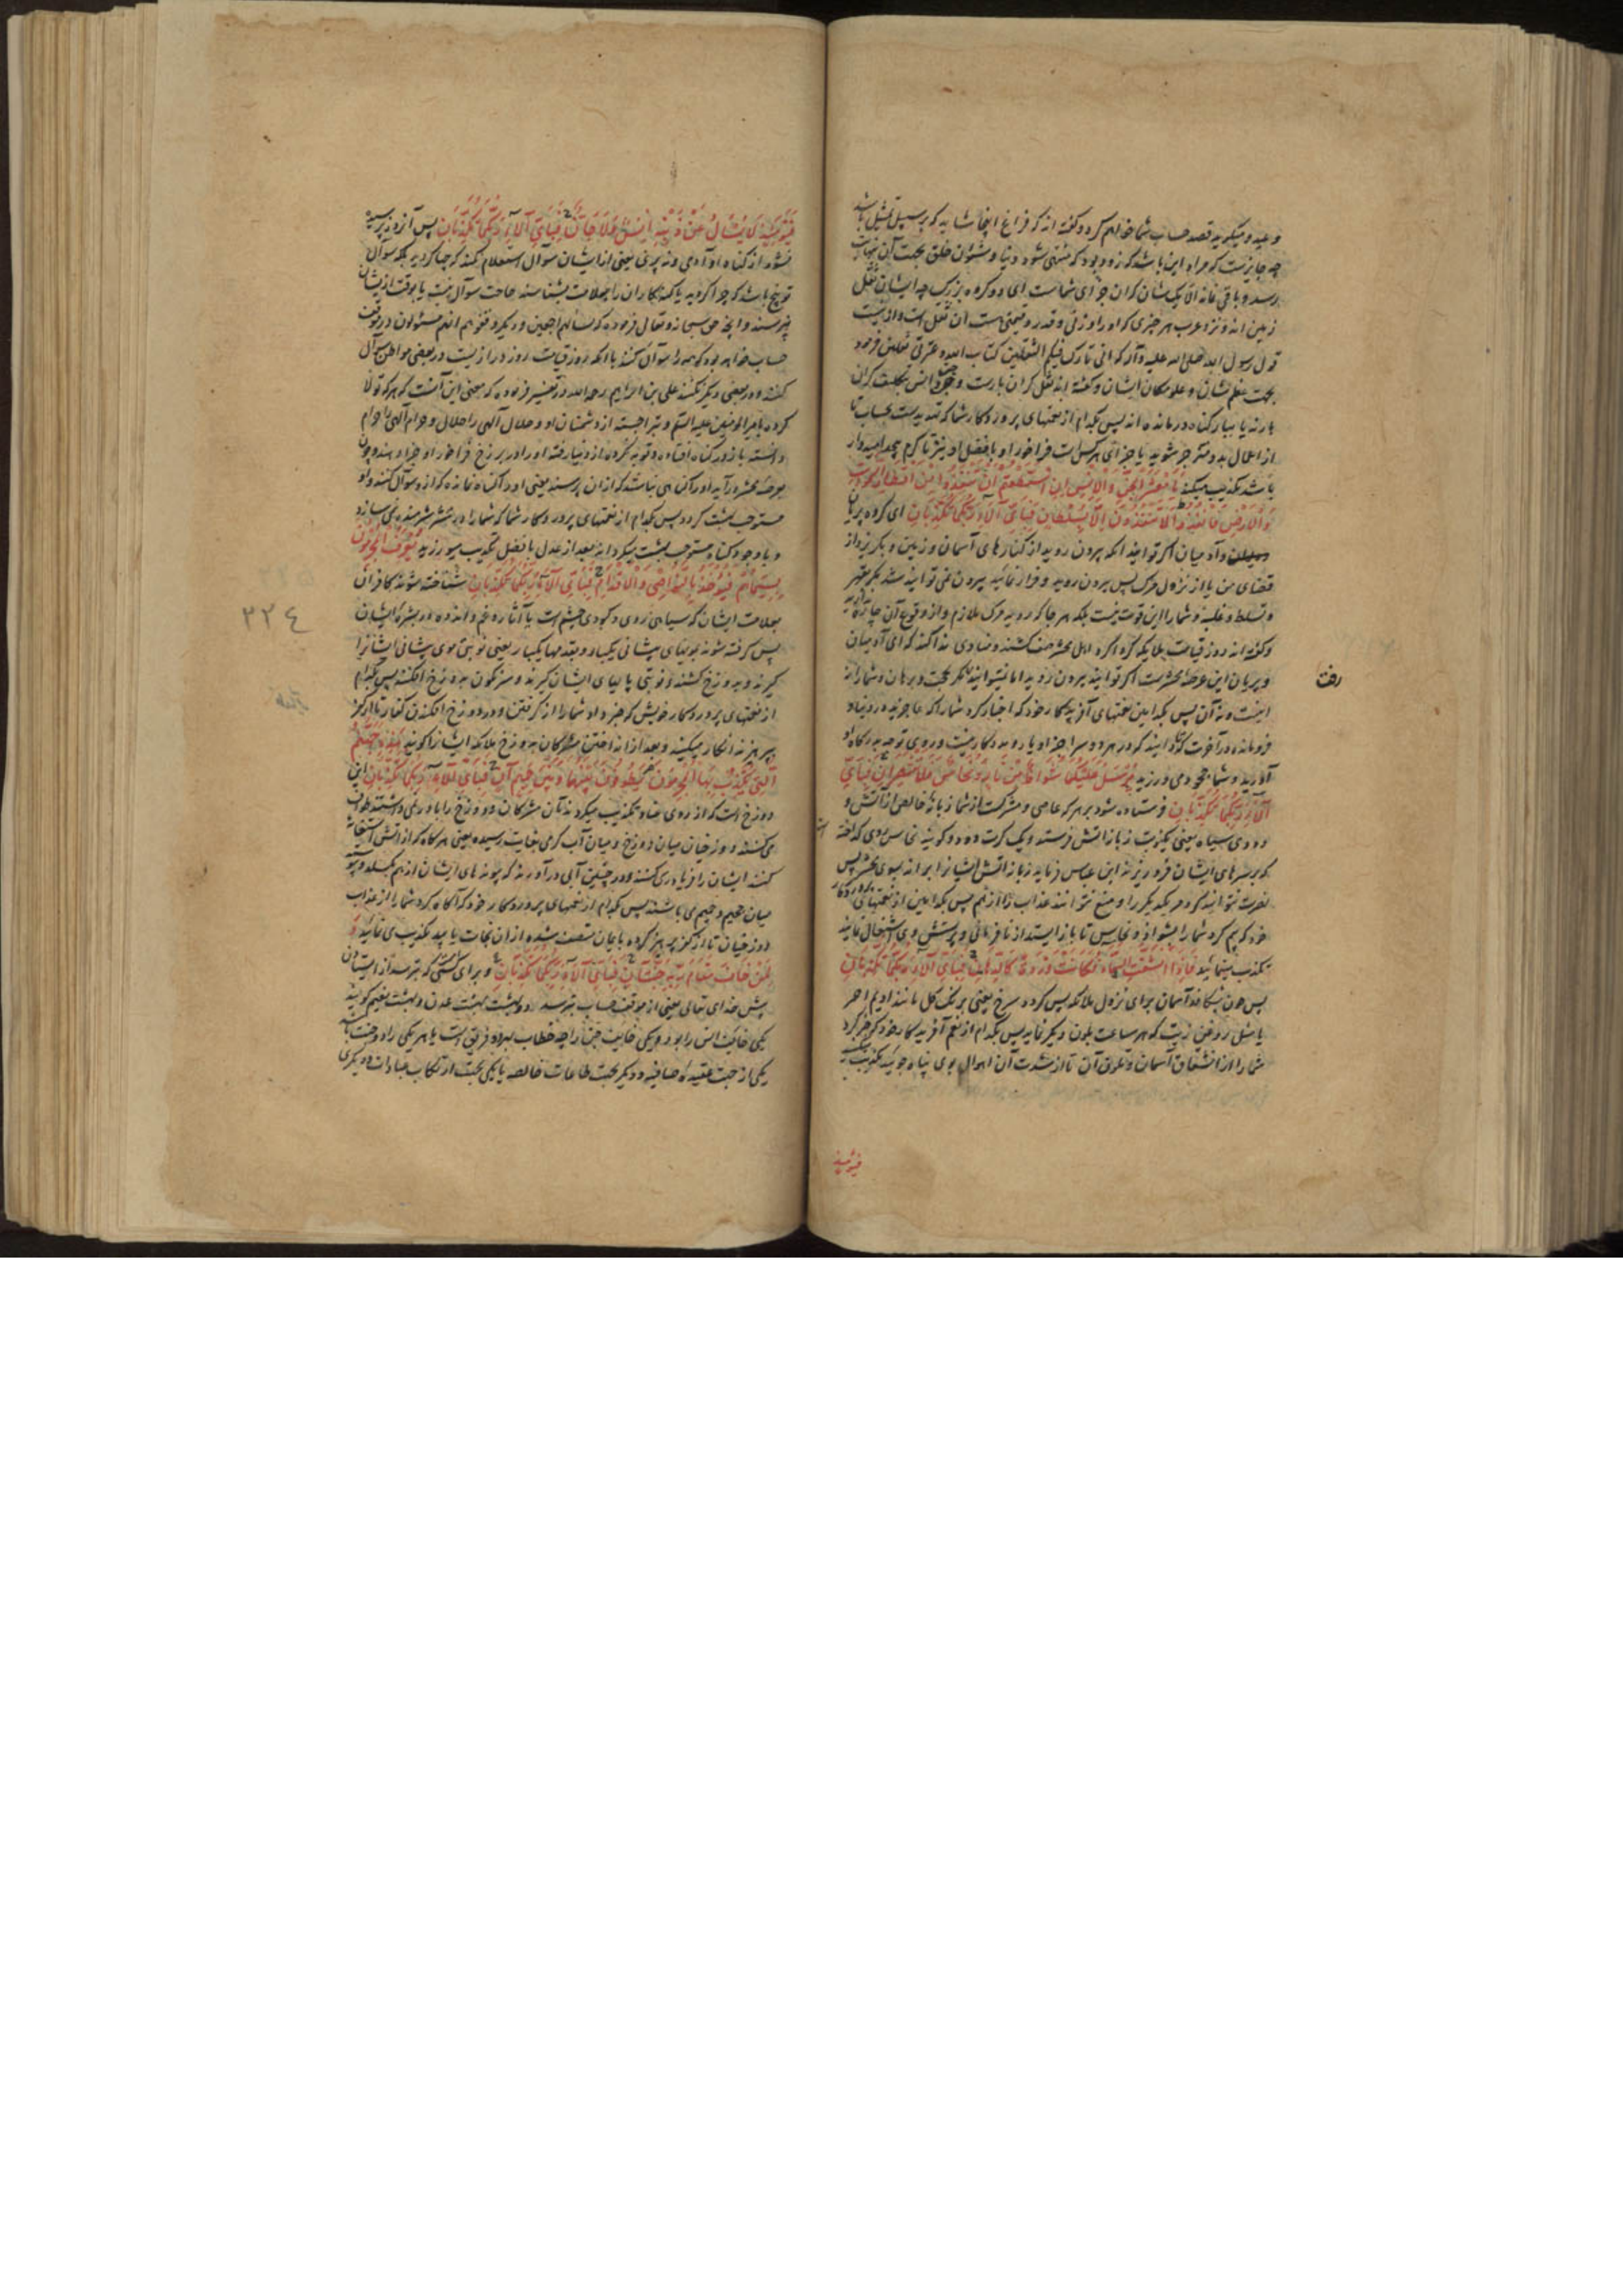 وعید و میکوید قصد حساب شما خواهم کرد و کفته اند که فراغ اینجا شاید که بر سبیل تمثیل باشد
چه جایزست که مراد این باشد که زود بود که منتهی شود دنیا و شئون خلق بجهت آن بنهایت
رسد و باقی نماند الا یک شان که آن جزای شماست ای دو کروه بزرک چه ایشان ثقل
زمین اند و نزد عرب هر چیزی که او را وزنی و قدر و قیمتی هست آن ثقل است و ازینست
قول رسول الله صلی الله علیه وآله که انی تارک فیکم الثقلین کتاب الله و عترتی ثقلین فرمود
بجهت عظم شان و علو مکان ایشان و کفته اند ثقل کران بارست و جن و انس بتکلیف کران
بارند یا ببار کناه درمانده اند پس بکدام از نعمتهای پروردکار شما که تهدیدست بحساب تا
از اعمال بد منزجر شوید یا جزای هر کس است فراخور او یا فضل او
باشد تکذیب میکنید یَا مَعْشَرَ الْجِنِّ وَالْاِنْسِ اِنِ اسْتَطَعْتُمْ اَنْ تَنْفُذُوا مِنْ اَقْطَارِ السَّمٰوَاتِ
وَالْاَرْضِ فَانْفُذُوا لَا تَنْفُذُونَ اِلَّا بِسُلْطَانٍ فَبِاَیِّ آلَاءِ رَبِّکُمَا تُکَذِّبَانِ ای کروه پریان
و آدمیان اکر توانید آنکه بیرون روید از کنارهای آسمان و زمین و بکریزید از
قضای من یا از نزول مرک پس بیرون روید و فرار نمائید بیرون نمی توانید شد مکر بقهر
و تسلط و غلبه و شما را این قوت نیست بلکه هر جا که روید مرک ملازم و از وقوع آن چاره
و کفته اند روز قیامت ملایکه کرداکرد اهل محشر صف کشند و منادی ندا کند که ای آدمیان
و پریان این عرصه محشرست اکر توانید بیرون روید اما نتوانید مکر بحجت و برهان و شما را نه
اینست و نه آن پس بکدامین نعمتهای آفریدکار خود که اخبار کرد شما را که عاجزید در دنیا و
فرومانده در آخرت
آورید و شما جحود می ورزید یُرْسَلُ عَلَیْکُمَا شُوَاظٌ مِنْ نَارٍ وَنُحَاسٌ فَلَا تَنْتَصِرَانِ فَبِاَیِّ
آلَاءِ رَبِّکُمَا تُکَذِّبَانِ فرستاده شود بر هر که عاصی و مشرکست از شما زبانهٔ خالص از آتش و
دودی سیاه یعنی یکنوبت زبانه آتش فرستد و یک کرت دود و کویند نحاس مس کداخته
که بر سرهای ایشان فرو ریزند ابن عباس فرماید زبانه آتش ایشانرا براند بسوی محشر پس
نصرت نتوانید کرد مر یکدیکر را و منع نتوانند عذاب را از هم پس بکدامین از نعمتهای پروردکار
خود که بیم کرد شما را بشواظ و نحاس تا باز ایستید از نافرمانی و پرستش وی اشتغال نمایید
تکذیب مینمائید فَاِذَا انْشَقَّتِ السَّمَاءُ فَکَانَتْ وَرْدَةً کَالدِّهَانِ فَبِاَیِّ آلَاءِ رَبِّکُمَا تُکَذِّبَانِ
پس چون بشکافد آسمان برای نزول ملائکه پس کردد سرخ یعنی برنک کل یا مانند ادیم احمر
یا مثل روغن زیت که هر ساعت بلون دیکر نماید پس بکدام از نعم آفریدکار خود که خبر کرد
شما را از انشقاق آسمان و تلون آن تا از شدت آن اهوال بوی پناه جوئید تکذیب میکنید
فیومئذ
فَیَوْمَئِذٍ لَا یُسْئَلُ عَنْ ذَنْبِهٖ اِنْسٌ وَلَا جَانٌّ فَبِاَیِّ آلَاءِ رَبِّکُمَا تُکَذِّبَانِ پس آنروز پرسیده
نشود از کناه او آدمی و نه پری یعنی از ایشان سوال استعلام نکنند که چها کردید بلکه سوآل
توبیخ باشد که چرا کردید یا کنهکاران را بعلامت بشناسند حاجت سوآل نیست یا بوقت از یشان
نپرسند و آنچه حق سبحانه و تعالی فرموده که لنسألنهم اجمعین و دیکر وقفوهم انهم مسئولون در موقف
حساب خواهد بود که همه را سوآل کنند یا آنکه روز قیامت روز درازیست در بعضی مواطن سوآل
کنند و در بعضی دیکر نکنند علی بن ابراهیم رحمه الله در تفسیر فرموده که معنی این آنست که هر که تولا
کرده بامیرالمومنین علیه السلم و تبرا جسته از دشمنان او و حلال آلهی را حلال و حرام آلهی را حرام
دانسته باز در کناه افتاده و توبه نکرده از دنیا رفته او را در برزخ فراخور او جزا دهند و چون
بعرصهٔ محشر درآید او را کناهی نباشد که از آن پرسند یعنی او را کناه نمانده که ازو سوآل کنند و او
مستوجب بهشت کردد پس بکدام از نعمتهای پروردکار شما که شما را در محشر شرمنده نمی سازد
و با وجود کناه مستوجب بهشت میکرداند بعد از عدل یا فضل تکذیب میورزید یُعْرَفُ الْمُجْرِمُونَ
بِسِیمَاهُمْ فَیُؤْخَذُ بِالنَّوَاصِی وَالْاَقْدَامِ فَبِاَیِّ آلَاءِ رَبِّکُمَا تُکَذِّبَانِ شناخته شوند کافران
بعلامت ایشان که سیاهی روی و کبودی چشم است یا آثار غم و اندوه در بشرهٔ ایشان
پس کرفته شوند بمویهای پیشانی یکبار و بقدمها یکبار یعنی نوبتی موی پیشانی ایشانرا
کیرند و بدوزخ کشند و نوبتی پایهای ایشان کیرند و سرنکون بدوزخ افکنند پس بکدام
از نعمتهای پروردکار خویش که خبر داد شما را از کرفتن و در دوزخ افکندن کفار تا از کفر
بپرهیزند انکار میکنید و بعد از انداختن مشرکان بدوزخ ملائکه ایشانرا کویند هٰذِهٖ جَهَنَّمُ
الَّتِی یُکَذِّبُ بِهَا الْمُجْرِمُونَ یَطُوفُونَ بَیْنَهَا وَبَیْنَ حَمِیمٍ آنٍ فَبِاَیِّ آلَاءِ رَبِّکُمَا تُکَذِّبَانِ این
دوزخ است که از روی عناد تکذیب میکردند آن مشرکان و دوزخ را باور نمی داشتند طوف
می کنند دوزخیان میان دوزخ و میان آب کرم بغایت رسیده یعنی هرکاه که از آتش استغاثه
کنند ایشان را فریادرسی کنند و در چنین آبی درآورند که پیوندهای ایشان از هم بکسلد و پیوسته
میان حمیم و جحیم می باشند پس بکدام از نعمتهای پروردکار خود که آکاه کرد شما را از عذاب
دوزخیان تا از کفر پرهیز کرده بایمان متصف شده از آن نجات یابید تکذیب می نمائید وَ
لِمَنْ خَافَ مَقَامَ رَبِّهٖ جَنَّتَانِ فَبِاَیِّ آلَاءِ رَبِّکُمَا تُکَذِّبَانِ و برای کسی که بترسد از ایستادن
پیش خدای تعالی یعنی از موقف حساب بترسد دو بهشت بهشت عدن و بهشت نعیم کویند
یکی خائف انس را بود و یکی خایف جن را چه خطاب بهر دو فریق است یا هر یکی را دو جنت باشد
یکی از جهت عقیدهٔ صافیه و دیکر بجهت طاعات خالصه یا یکی بجهت ارتکاب عبادات و دیکری
٣٢٤